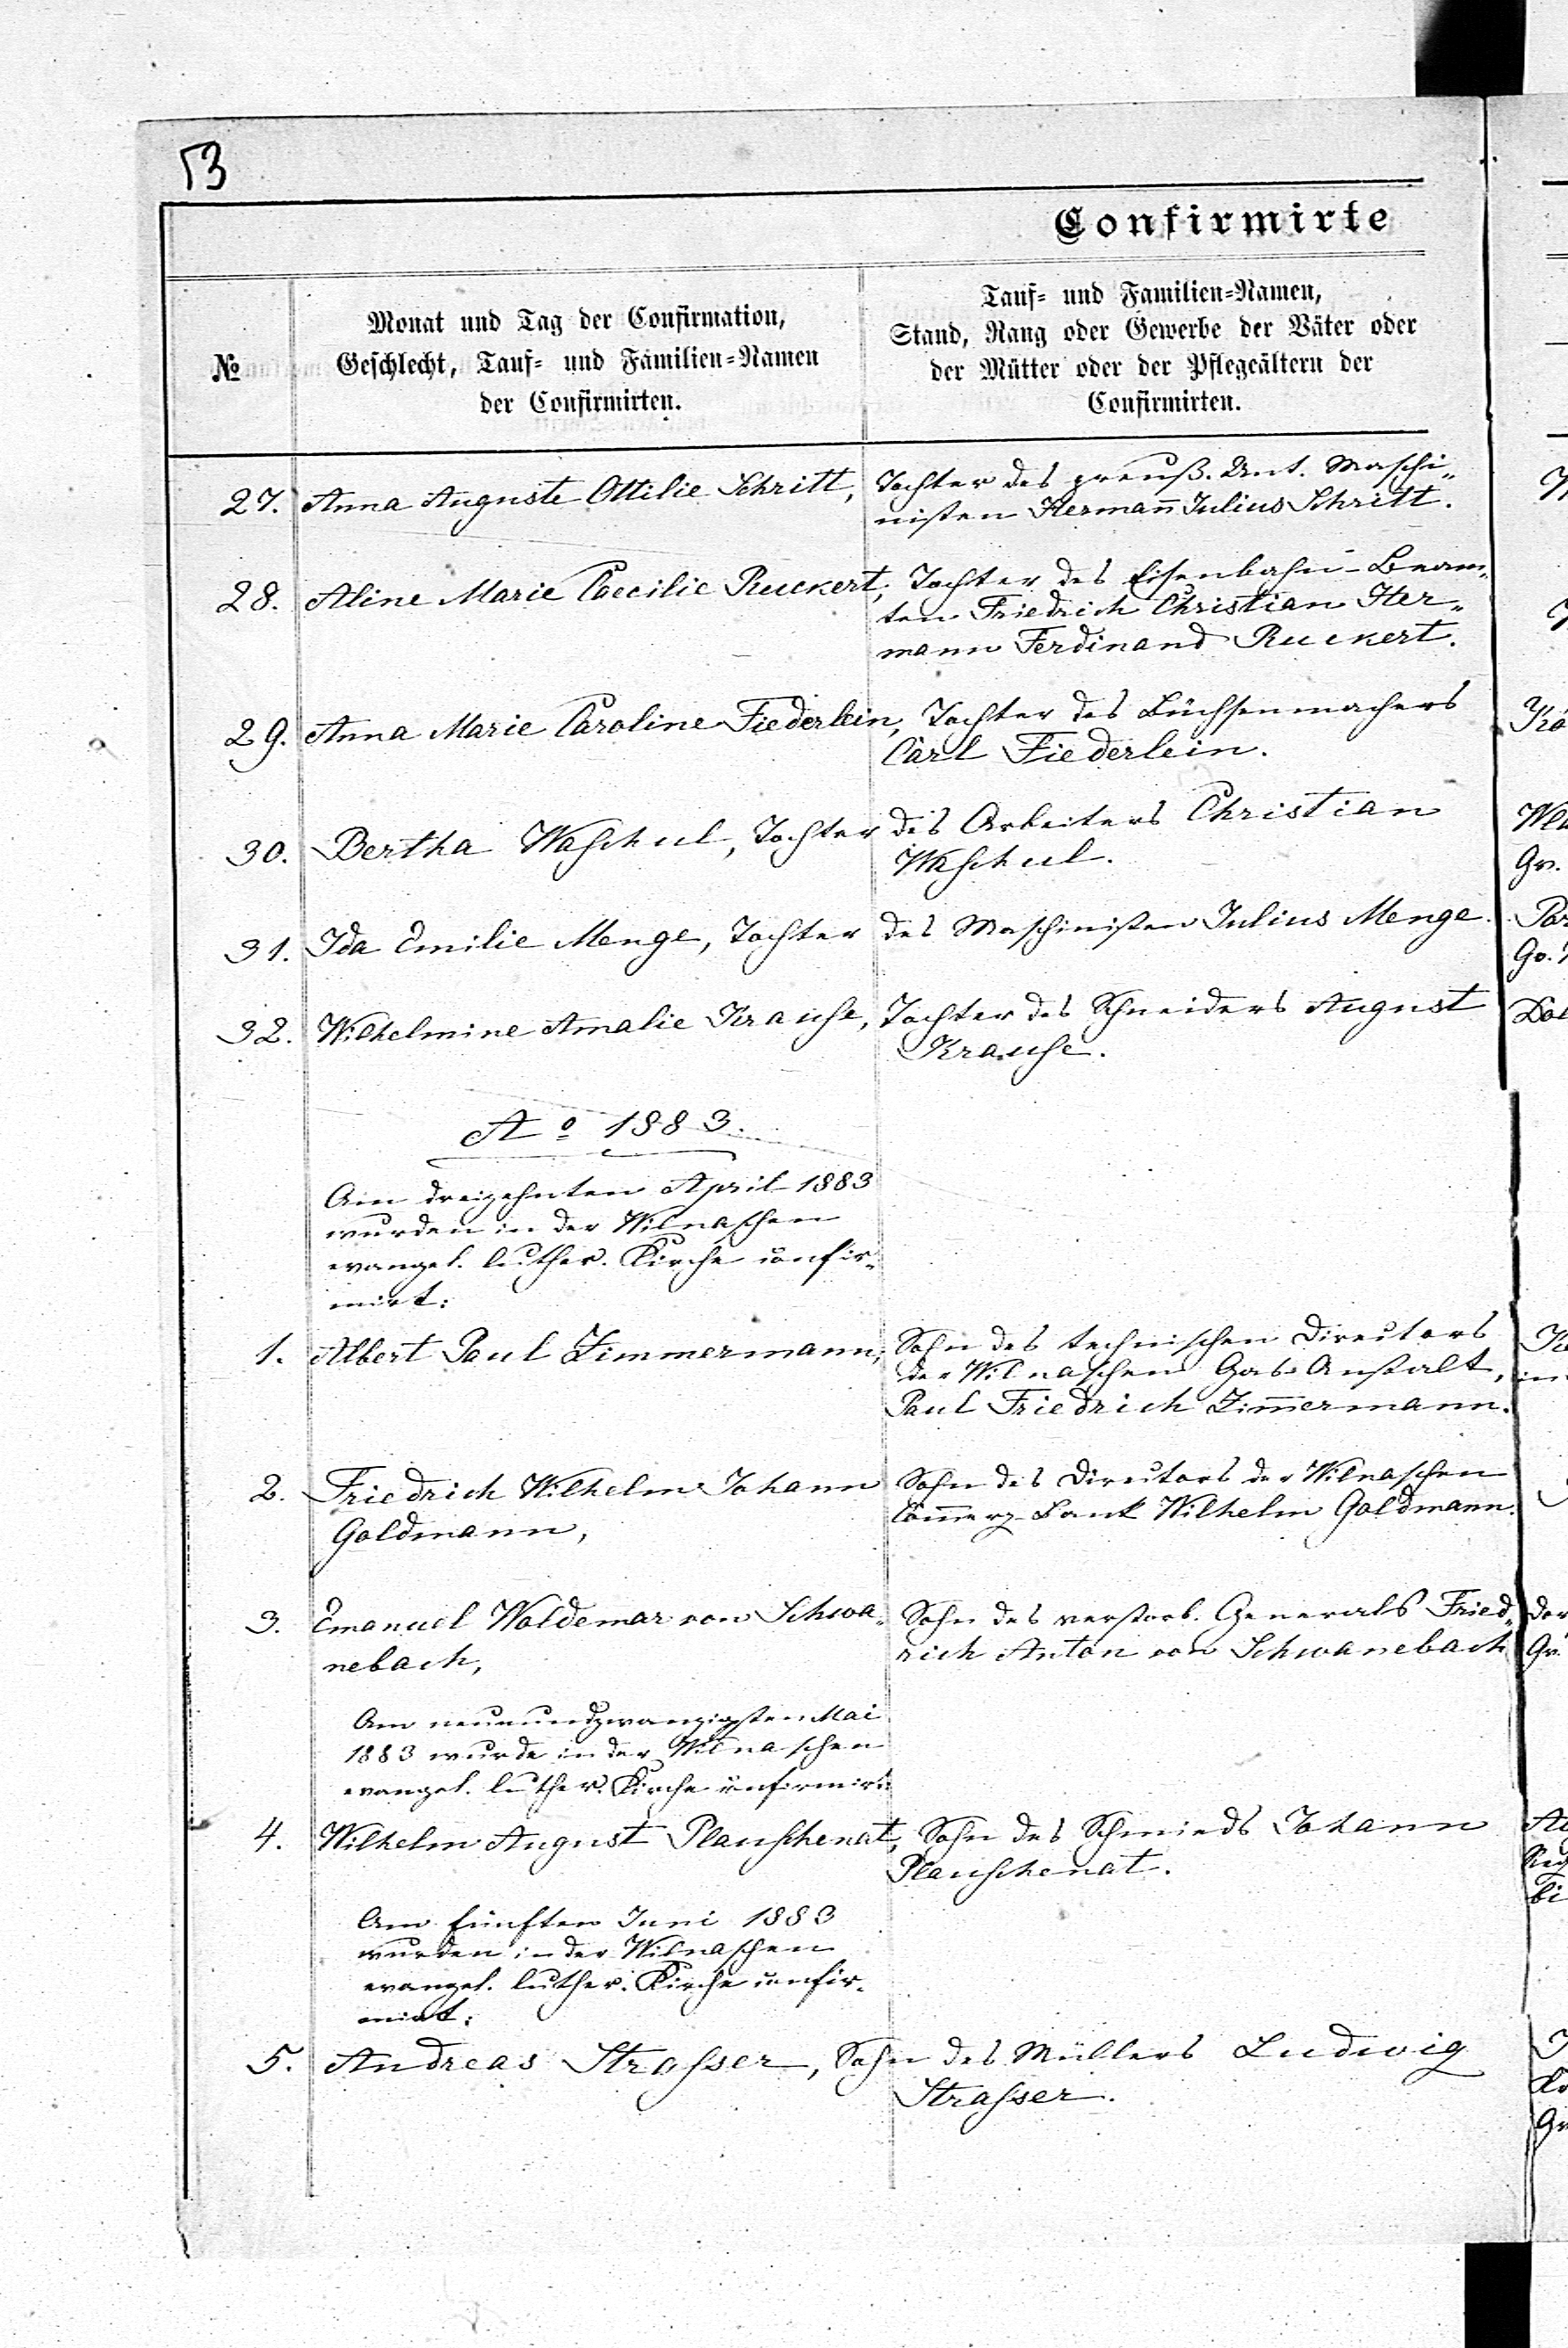 53
Confirmirte
№
Monat und Tag der Confirmation,
Geschlecht, Tauf- und Familien-Namen
der Confirmirten.
Tauf- und Familien-Namen,
Stand, Rang oder Gewerbe der Väter oder
der Mütter oder der Pflegeältern der
Confirmirten.
27. Anna Auguste Ottilie Schritt, Tochter des preuß. Unt. Maschi-
nisten Herman̄ Julius Schritt.
28. Aline Marie Caecilie Ruckert, Tochter des Eisenbahn-Beam-
ten Friedrich Christian Her-
mann Ferdinand Ruckert.
29. Anna Marie Caroline Fiederlein, Tochter des Büchsenmachers
Carl Fiederlein.
30. Bertha Waschul, Tochter des Arbeiters Christian
Waschul.
31. Ida Emilie Menge, Tochter des Maschinisten Julius Menge.
32. Wilhelmine Amalie Krause, Tochter des Schneiders August
Krause.
Aº 1883.
Am dreizehnten April 1883
wurden in der Wilnaschen
evangel. luther. Kirche confir-
mirt:
1. Albert Paul Zimmermann, Sohn des technischen Directors
der Wilnaschen Gas-Anstalt,
Paul Friedrich Zim̄ermann.
2. Friedrich Wilhelm Johann Sohn des Directors der Wilnaschen
Goldmann, Com̄erz-Bank Wilhelm Goldmann.
3. Emanuel Woldemar von Schwa- Sohn des verstorb. Generals Fried-
nebach, rich Anton von Schwanebach
Am neunundzwanzigsten Mai
1883 wurde in der Wilnaschen
evangel. luther. Kirche confirmirt:
4. Wilhelm August Plauschenat, Sohn des Schmieds Johann
Plauschenat.
Am fünften Juni 1883
wurden in der Wilnaschen
evangel. luther. Kirche confir-
mirt:
5. Andreas Strasser, Sohn des Müllers Ludwig
Strasser.